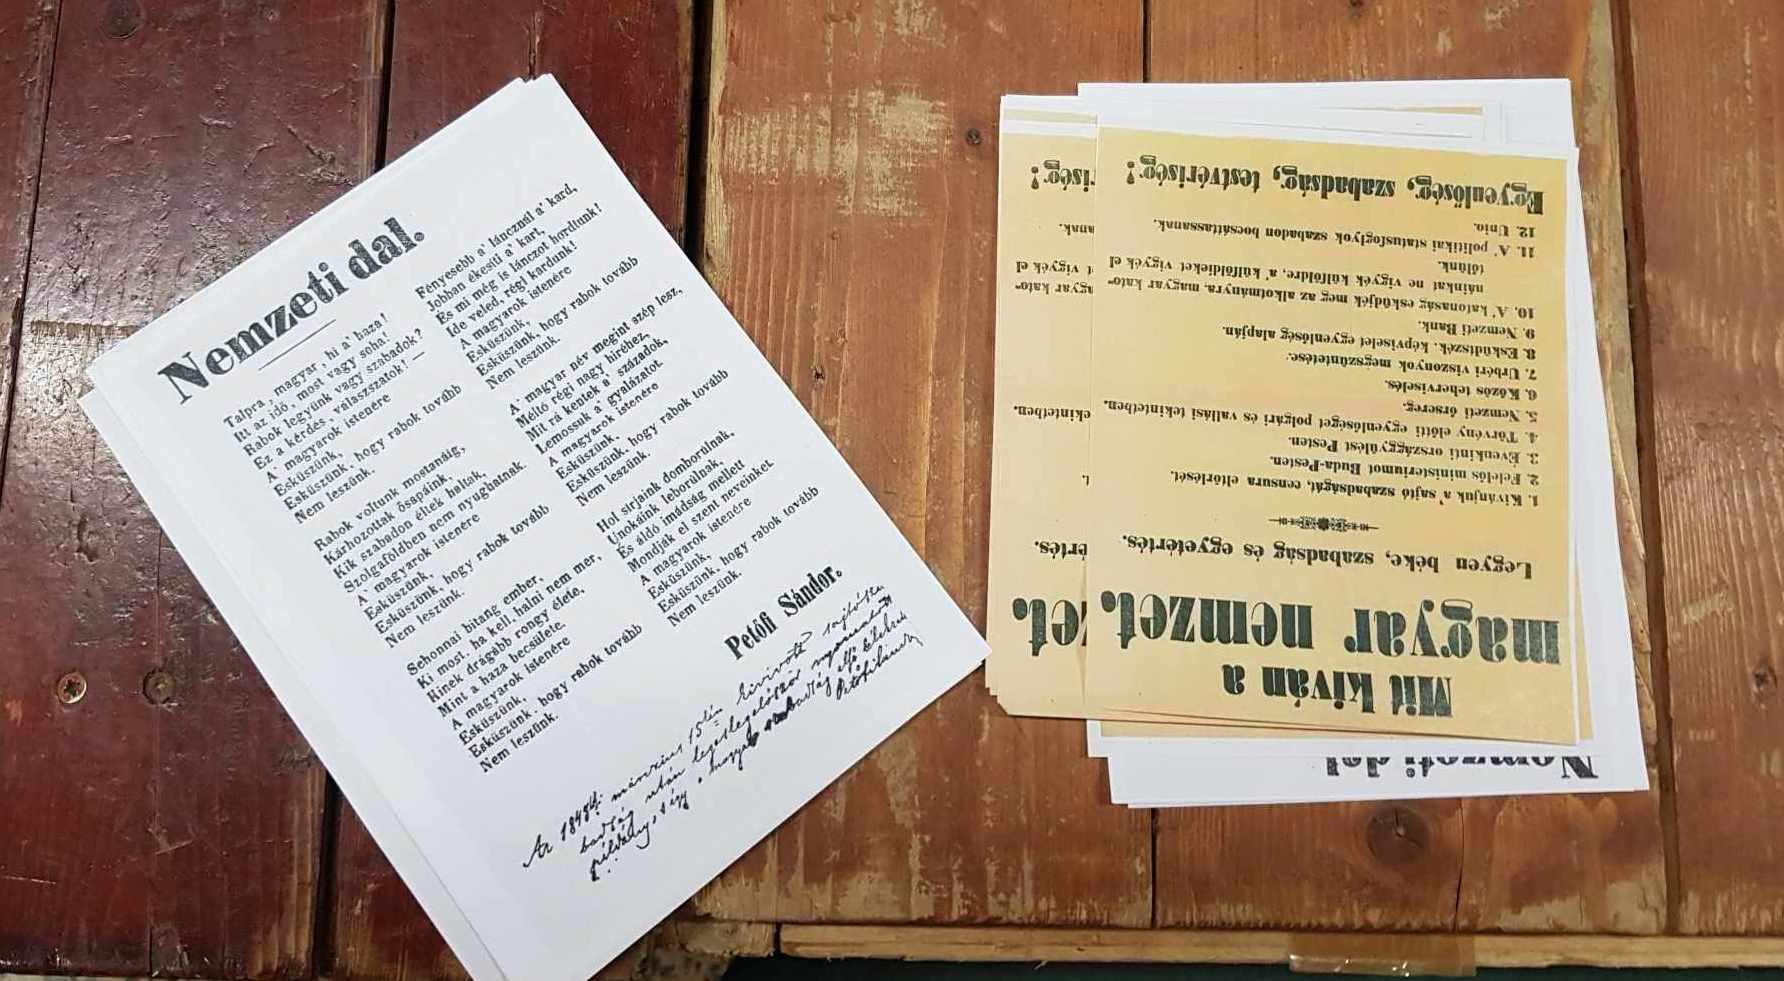 Nemzeti dal.
Talpra, magyar, hi a' haza!
Itt az idő, most vagy soha!
Rabok legyünk vagy szabadok?
Ez a kérdés, válaszszatok! —
A' magyarok istenére
Esküszünk,
Esküszünk, hogy rabok tovább
Nem leszünk.
Rabok voltunk mostanáig,
Kárhozottak ősapáink,
Kik szabadon éltek haltak,
Szolgaföldben nem nyughatnak.
A magyarok istenére
Esküszünk,
Esküszünk, hogy rabok tovább
Nem leszünk.
Sehonnai bitang ember,
Ki most, ha kell, halni nem mer,
Kinek drágább rongy élete,
Mint a haza becsülete.
A magyarok istenére
Esküszünk,
Esküszünk, hogy rabok tovább
Nem leszünk.
Fényesebb a' láncznál a' kard,
Jobban ékesíti a' kart,
És mi még is lánczot hordtunk!
Ide veled, régi kardunk!
A magyarok istenére
Esküszünk,
Esküszünk, hogy rabok tovább
Nem leszünk.
A' magyar név megint szép lesz,
Méltó régi nagy hiréhez,
Mit rá kentek a' századok,
Lemossuk a' gyalázatot
A magyarok istenére
Esküszünk,
Esküszünk, hogy rabok tovább
Nem leszünk.
Hol sirjaink domborulnak,
Unokáink leborúlnak,
És áldó imádság mellett
Mondják el szent neveinket
A magyarok istenére
Esküszünk,
Esküszünk, hogy rabok tovább
Nem leszünk.
Petőfi Sándor.
Az 1848diki márczius 15kén kivivott sajtósza-
badság után legeslegelőször nyomatott
példány, s így a magyar szabadság első lélekzete
Petőfi Sándor
Mit kiván a
magyar nemzet.
Legyen béke, szabadság és egyetértés.
1. Kivánjuk a' sajtó szabadságát, censura eltörlését.
2. Felelős ministeriumot Buda-Pesten.
3. Évenkinti országgyülést Pesten.
4. Törvény előtti egyenlőséget polgári és vallási tekintetben.
5. Nemzeti őrsereg.
6. Közös teherviselés.
7. Urbéri viszonyok megszüntetése.
8. Esküdtszék. képviselet egyenlőség alapján.
9. Nemzeti Bank.
10. A' katonaság esküdjék meg az alkotmányra, magyar kato-
náinkat ne vigyék külföldre, a' külföldieket vigyék el
tőlünk.
11. A' politikai statusfoglyok szabadon bocsáttassanak.
12. Unio.
Egyenlőség, szabadság, testvériség!
zet.
értés.
t.
ekintetben.
agyar kato-
t vigyék el
anak.
riség!
Nemzeti dal.